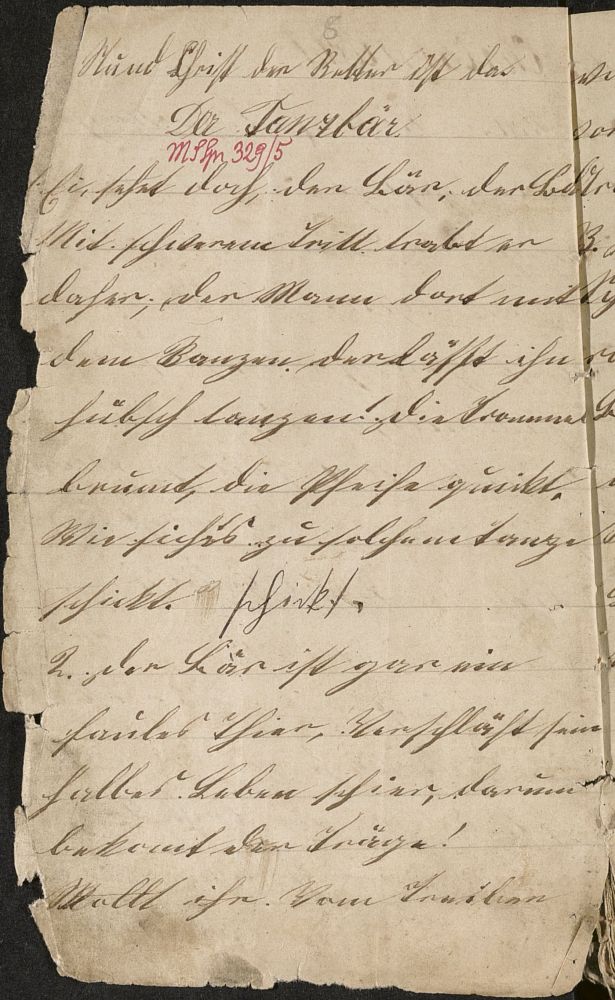 8
Stund Christ der Retter ist da
Der Tanzbär.
MS Hn 329/5
Ei, sehet doch, der Bär, der Bär
Mit schwerem Tritt trabt er
daher; der Mann dort mit
dem Ranzen der läßt ihn
hübsch tanzen! Die Trommel
brumt, die Pfeife quikt,
Wie sichs zu solchem Tanze
schickt. schickt.
2. Der Bär ist gar ein
faules Thier, Verschläft sein
halbes Leben schier, darum
bekomt der Träge!
Wollt ihr. Vom Treiber